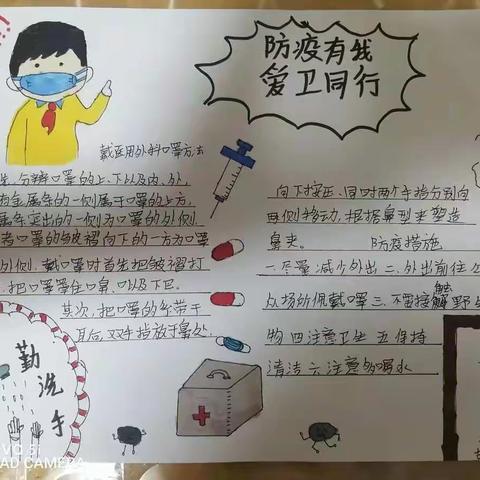 防疫有线
爱卫同行
戴医用外科口罩方法
先,分辨口罩的上、下以及内、外,
有金属条的一侧属于口罩的上方,
属条突出的一侧为口罩的外侧,
口罩的皱褶向下的一方为口罩
外侧.戴口罩时首先把皱褶打
,把口罩罩住口鼻以及下巴.
其次,把口罩的系带干
耳后,双手指放于鼻处,
向下按压,同时两个手指分别向
两侧移动,根据鼻型来塑造
鼻夹。
防疫措施
一.尽量减少外出 二.外出前往公
众场所佩戴口罩 三.不要接触野生
物 四.注意卫生 五.保持
清洁 六.注意多喝水
勤洗手
VO S1
AD CAMERA